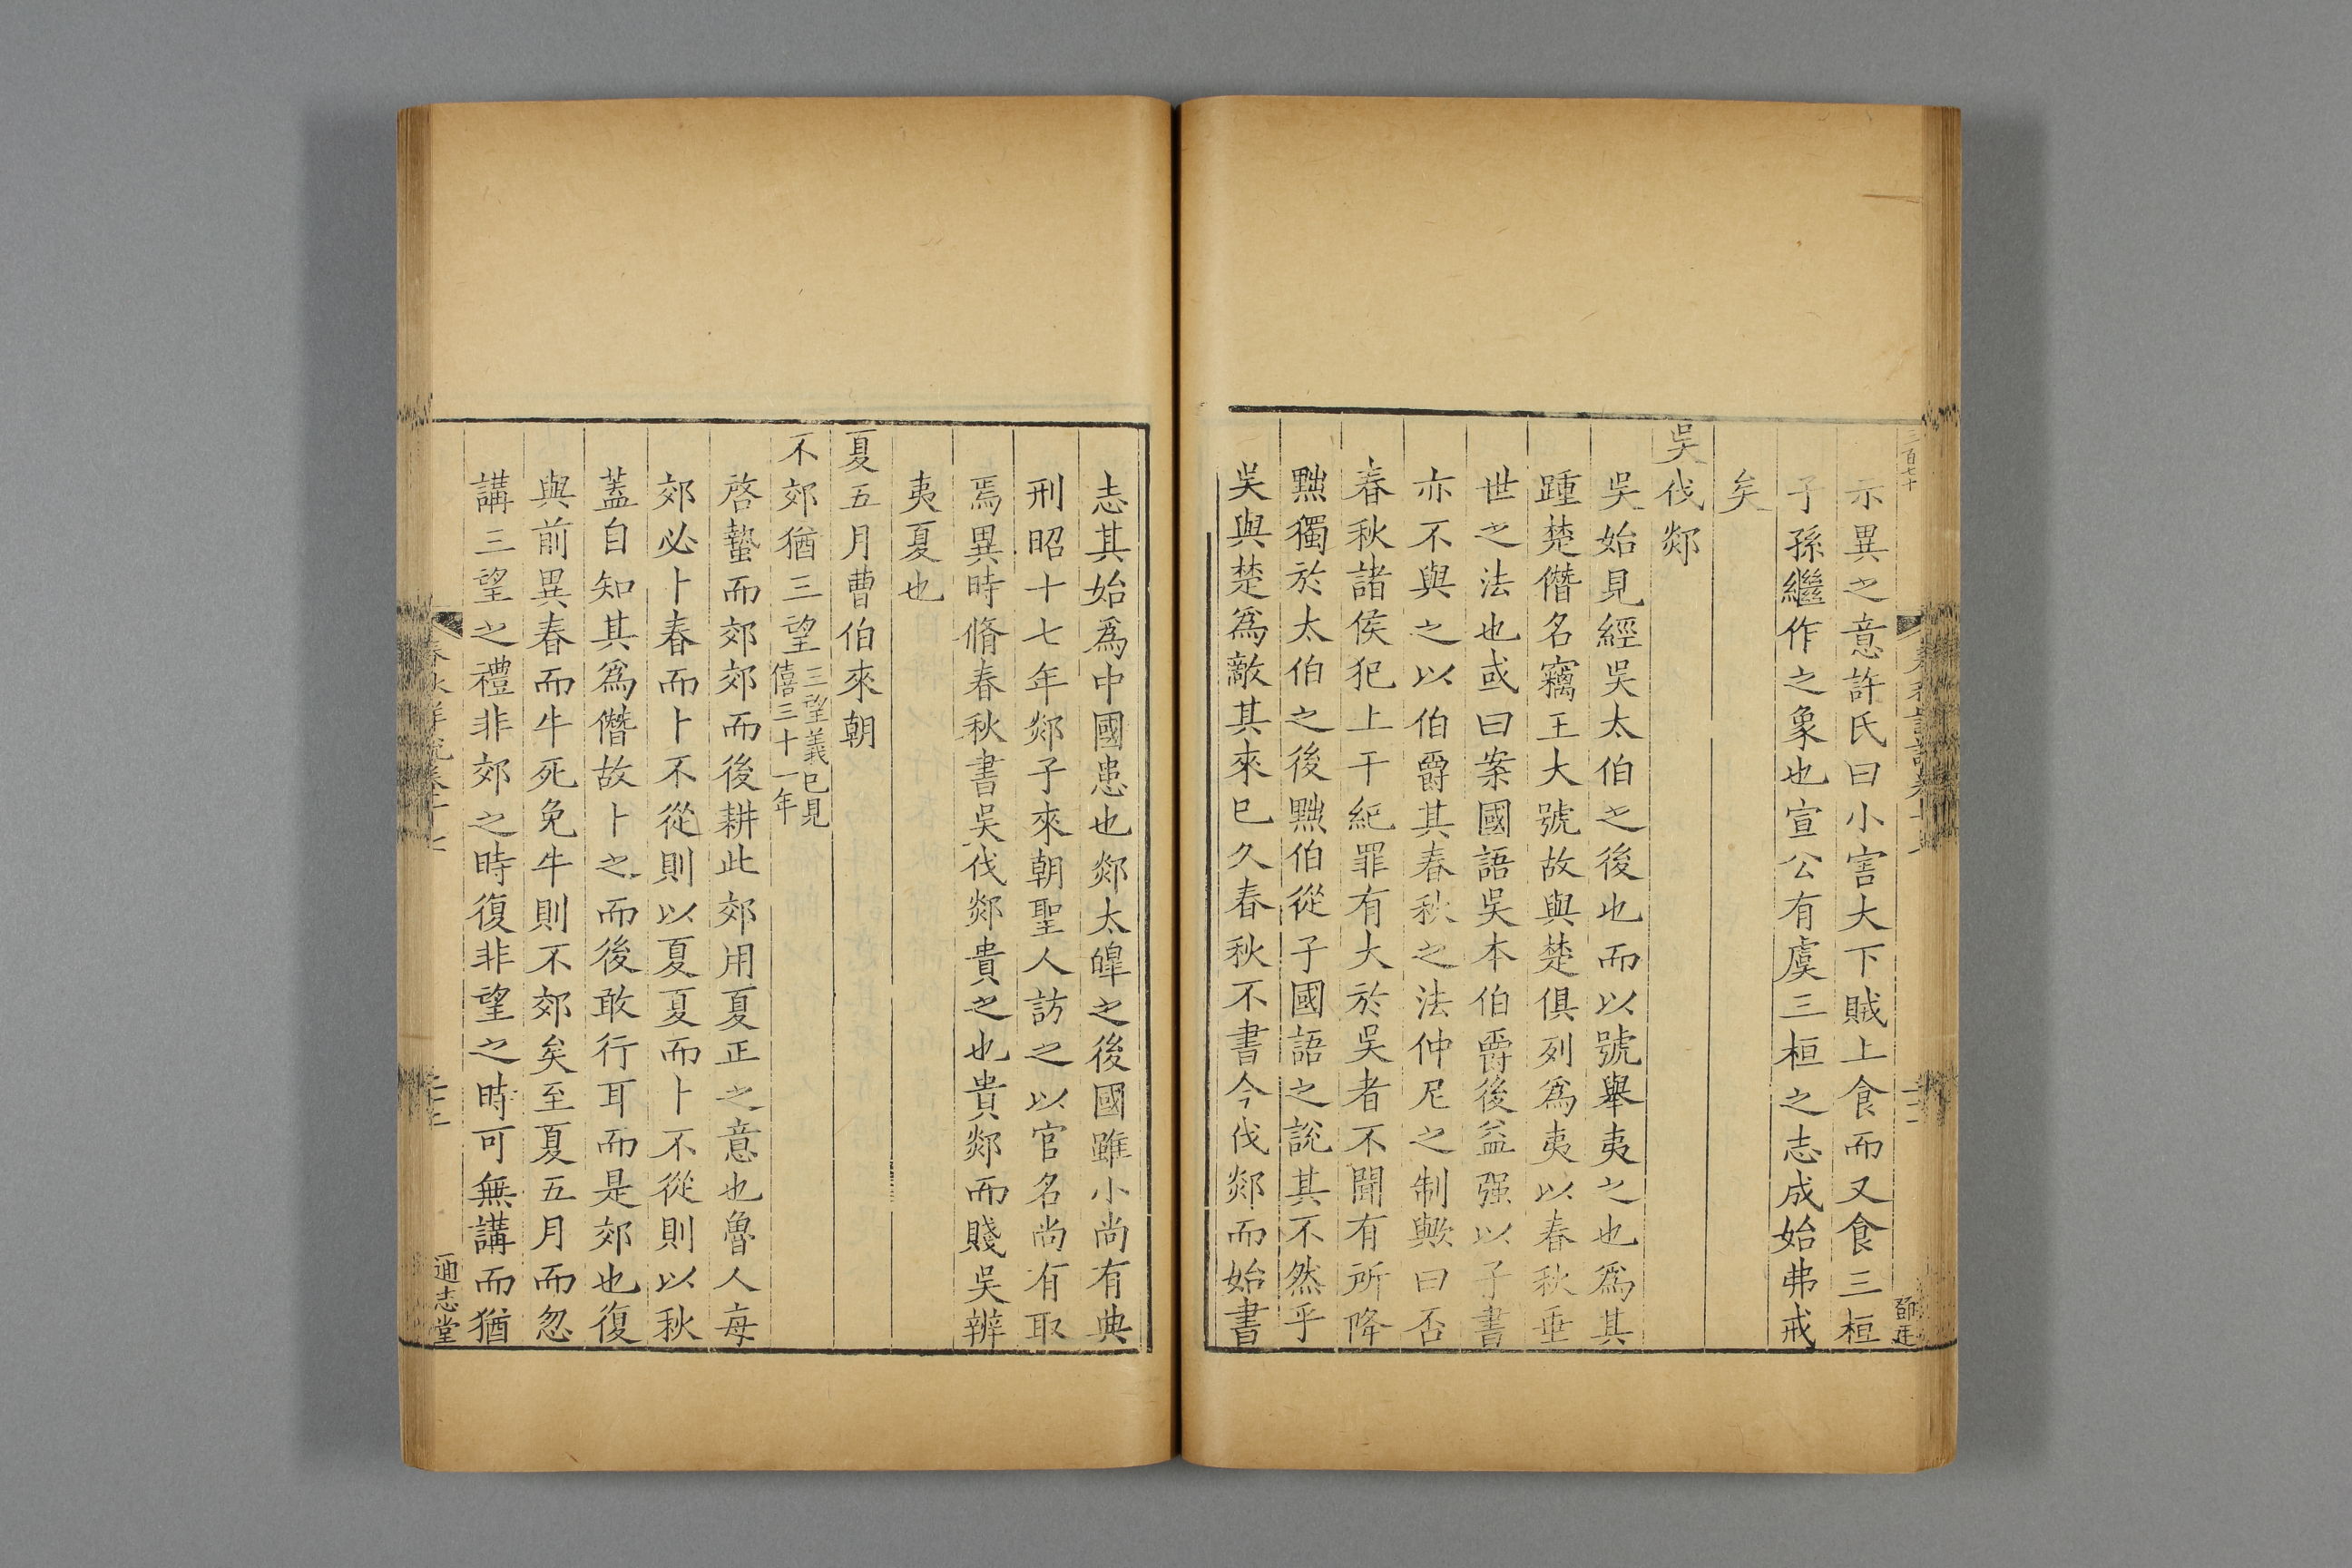 示異之意許氏曰小害大下賊上食而又食三桓
子孫繼作之象也宣公有虞三桓之志成始弗戒
矣
吳伐郯
吳始見經吳太伯之後也而以號舉夷之也爲其
踵楚僭名竊王大號故與楚俱列爲夷以春秋垂
世之法也或曰案國語吳本伯爵後益强以子書
亦不與之以伯爵其春秋之法仲尼之制歟曰否
春秋諸侯犯上干紀罪有大於吳者不聞有所降
黜獨於太伯之後黜伯從子國語之說其不然乎
吳與楚爲敵其來已久春秋不書今伐郯而始書
志其始爲中國患也郯太皥之後國雖小尚有典
刑昭十七年郯子來朝聖人訪之以官名尚有取
焉異時脩春秋書吳伐郯貴之也貴郯而賤吳辨
夷夏也
夏五月曹伯來朝
不郊猶三望三望義已見僖三十一年
啓蟄而郊郊而後耕此郊用夏正之意也魯人每
郊必卜春而卜不從則以夏夏而卜不從則以秋
蓋自知其爲僭故卜之而後敢行耳而是郊也復
與前異春而牛死免牛則不郊矣至夏五月而忽
講三望之禮非郊之時復非望之時可無講而猶
通志堂